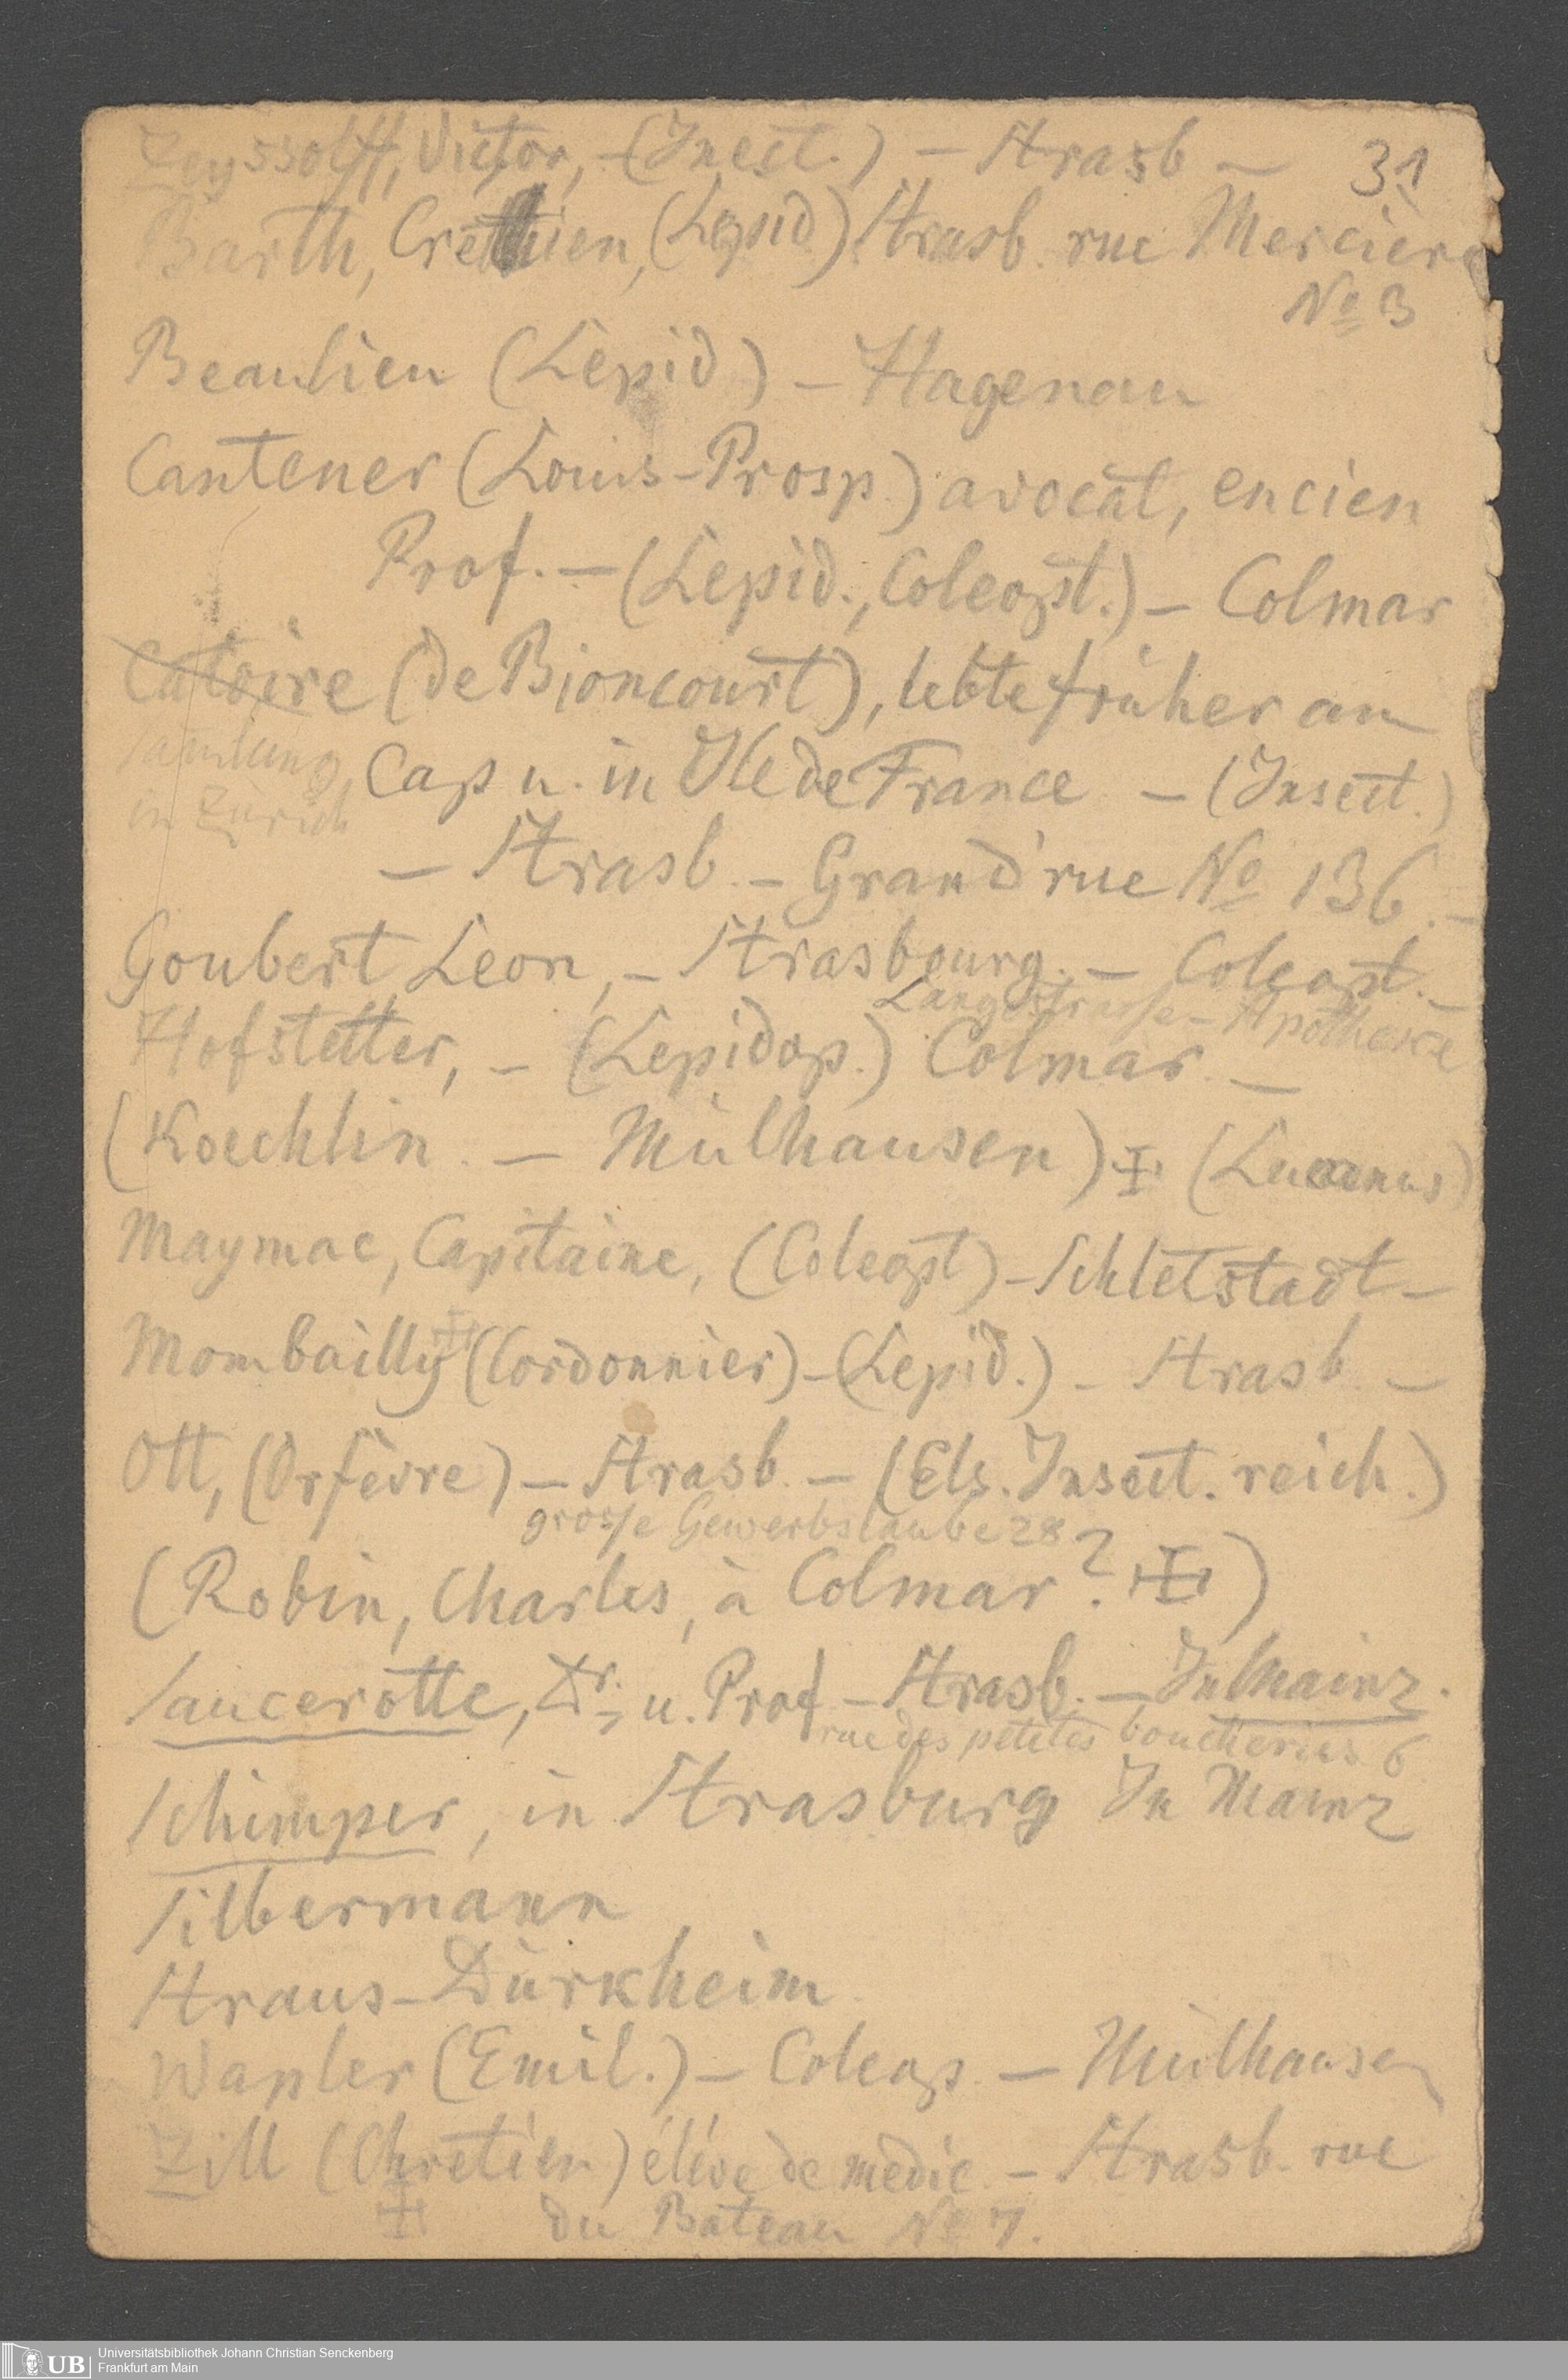 Zeyssolff, Victor, - (Insect.) - Strasb -
31
Barth, Cretthien, (Lepid) Strasb. rue Mercière
№ 3
Beaulieu (Lepid) - Hagenau
Cantener (Louis-Prosp.) avocat, encien
Prof. - (Lepid., Coleopt.) - Colmar
Catoire (de Bioncourt), lebte früher am
Samlung
Cap u. in Ile de France - (Insect.)
in Zürich
- Strasb. - Grand'rue № 136. -
Goubert Leon, - Strasbourg. - Coleopt. -
Langestrasse - Apotheke
Hofstetter, - (Lepidop.) Colmar. -
(Koechlin. - Mülhausen) ✠ (Lucanus)
Maymac, Capitaine, (Coleopt) - Schletstadt -
Mombailly ✠ (Cordonnier) - (Lepid.) - Strasb. -
Ott, (Orfèvre) - Strasb. - (Els. Insect. reich.)
grosse Gewerbslaube 28
(Robin, Charles, à Colmar? ✠)
Saucerotte, Dr. u. Prof - Strasb. - In Mainz.
rue des petites boucheries 6
Schimper, in Strasburg In Mainz
Silbermann
Straus-Dürkheim
Wapler (Emil.) - Coleop. - Mülhausen
Zill (Chretien) éléve de medic. - Strasb. rue
✠ du Bateau № 7.
UB
Universitätsbibliothek Johann Christian Senckenberg
Frankfurt am Main